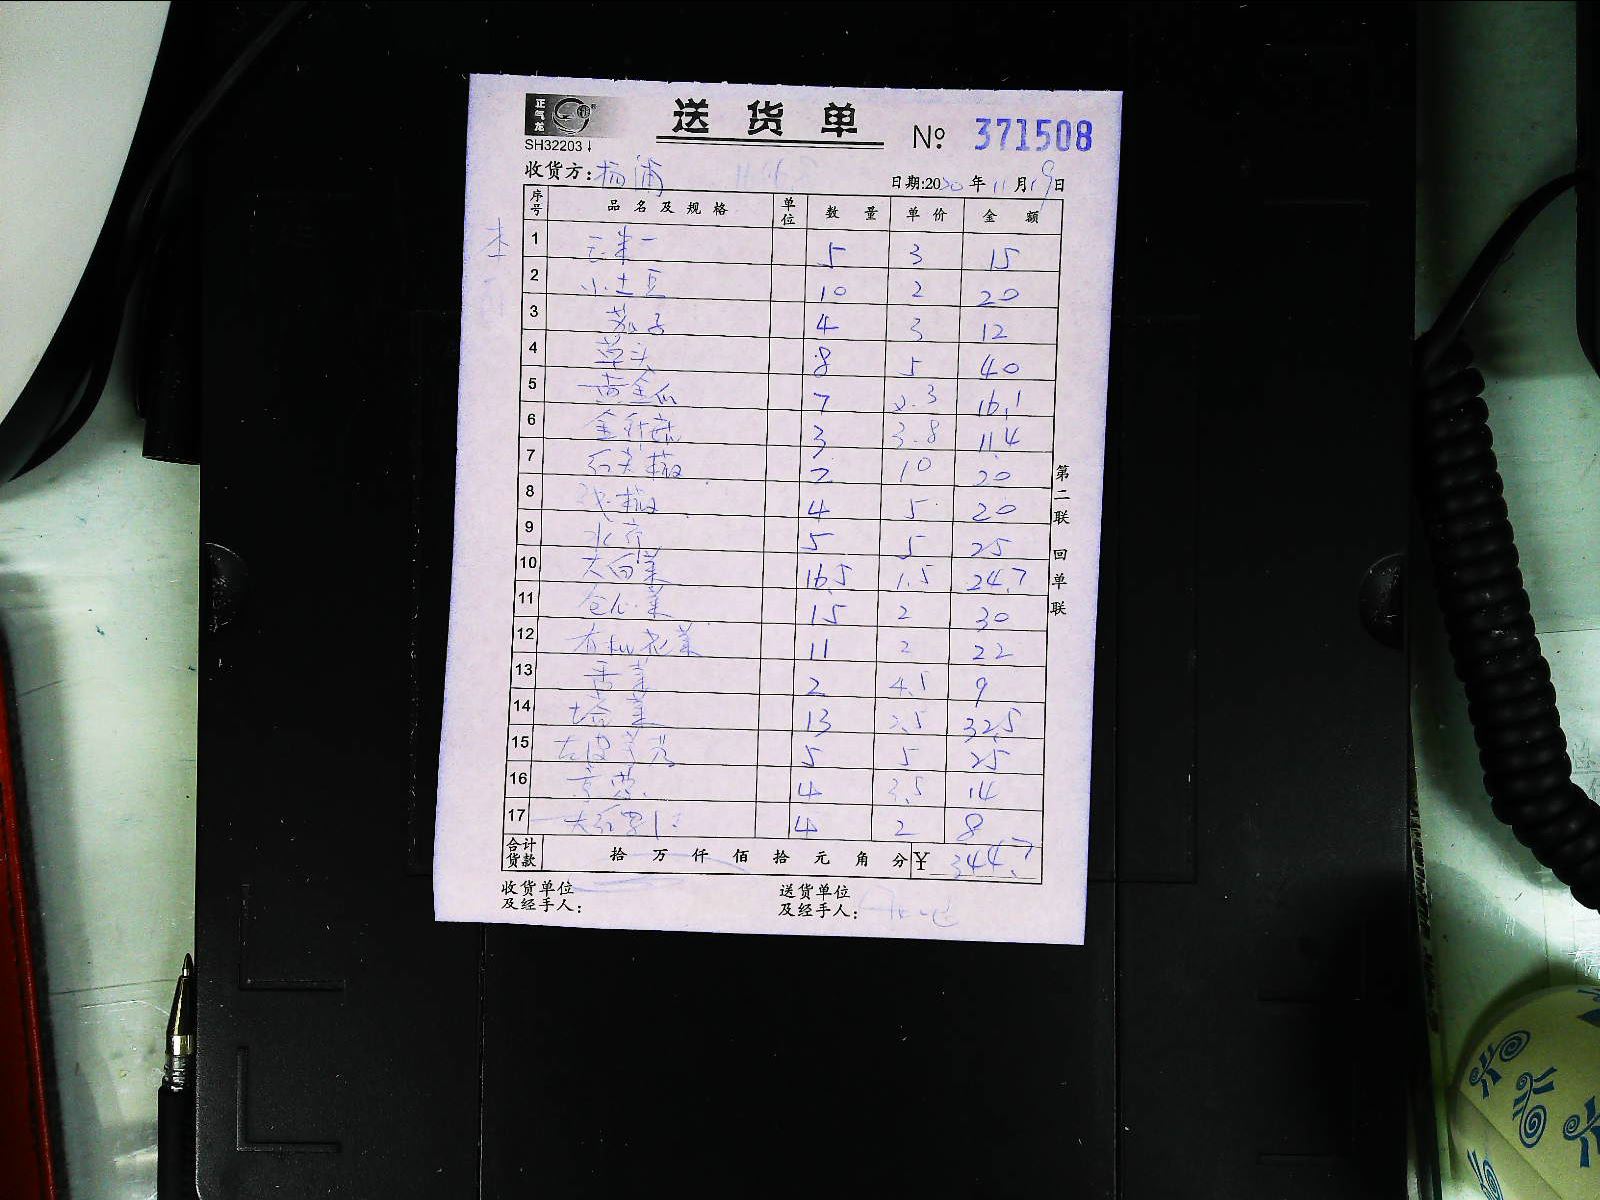 正气龙
送货单
SH32203
№ 371508
收货方: 杨浦
日期:2020年11月19日
序号 品名及规格 单位 数量 单价 金额
1 5 3 15
2 小土豆 10 2 20
3 茄子 4 3 12
4 草头 8 5 40
5 黄金瓜 7 2.3 16.1
6 金针菇 3 3.8 11.4
7 红尖椒 2 10 20
8 4 5 20
9 水芹 5 5 25
10 大白菜 16.5 1.5 24.7
11 卷心菜 15 2 30
12 有机花菜 11 2 22
13 香菜 2 4.5 9
14 塔菜 13 2.5 32.5
15 5 5 25
16 京葱 4 3.5 14
17 4 2 8
合计货款 拾 万 仟 佰 拾 元 角 分 ¥ 344.7
收货单位及经手人:
送货单位及经手人:
第二联 回单联